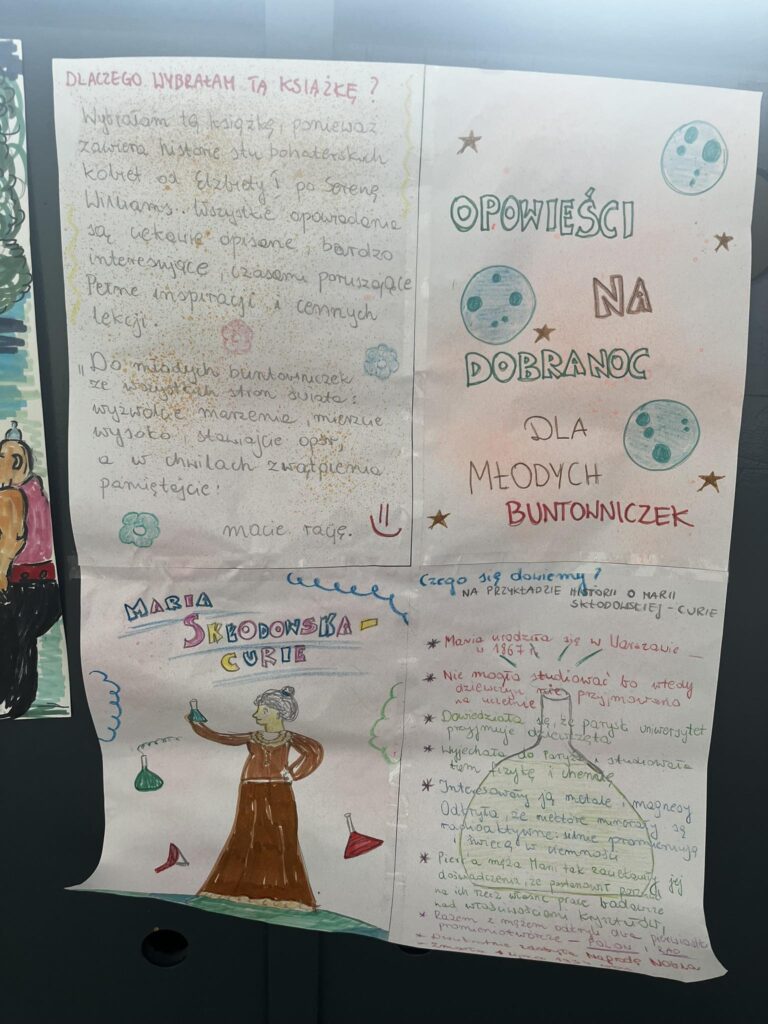 DLACZEGO WYBRAŁAM TĄ KSIĄŻKĘ?
Wybrałam tą książkę, ponieważ
zawiera historie stu bohaterskich
kobiet od Elżbiety I po Serenę
Williams. Wszystkie opowiadania
są ciekawie opisane, bardzo
interesujące, czasami poruszające
Pełne inspiracji i cennych
lekcji.
"Do młodych buntowniczek
ze wszystkich stron świata:
wyzwólcie marzenia, mierzcie
wysoko, stawiajcie opór,
a w chwilach zwątpienia
pamiętajcie:
macie rację.
OPOWIEŚCI
NA
DOBRANOC
DLA
MŁODYCH
BUNTOWNICZEK
MARIA
SKŁODOWSKA-
CURIE
Czego się dowiemy?
NA PRZYKŁADZIE HISTORII O MARII
SKŁODOWSKIEJ-CURIE
* Maria urodziła się w Warszawie
w 1867 r.
* Nie mogła studiować bo wtedy
dziewczyn nie przyjmowano
na uczelnie
* Dowiedziała się, że paryski uniwersytet
przyjmuje dziewczęta
* Wyjechała do Paryża i studiowała
tam fizykę i chemię
* Interesowały ją metale i magnesy
Odkryła, że niektóre minerały są
radioaktywne: silnie promieniują
i świecą w ciemności
* męża Marii tak zaciekawiły jej
doświadczenia, że postanowił porzucić
na ich rzecz własne prace badawcze
nad właściwościami kryształów,
* Razem z mężem odkryli dwa pierwiastki
promieniotwórcze - POLON i RAD
- Dwukrotnie zdobyła Nagrodę Nobla
- Zmarła